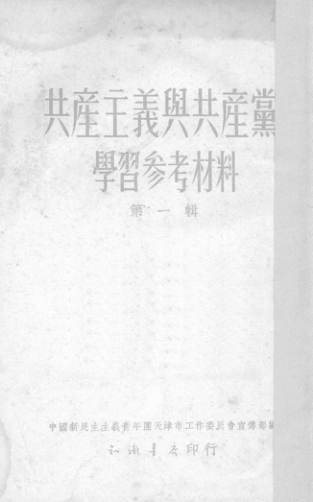 共產主義與共產黨
學習参考材料
第一輯
中國新民主主義青年團天津市工作委員會宣傳部編
知識書店印行